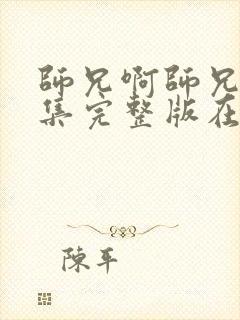 師兄啊師兄
集完整版在
陳平